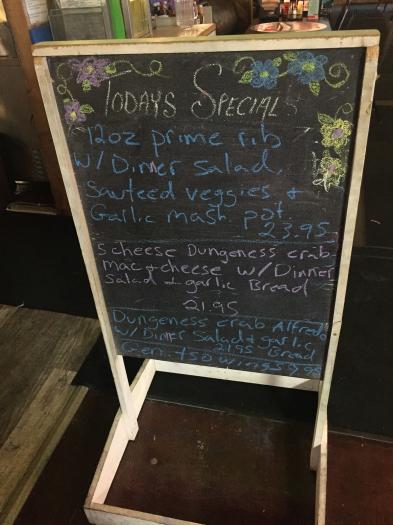 Todays Specials
12oz prime rib
w/Dinner Salad,
Sauteed veggies +
Garlic mash pot.
23.95
5 cheese Dungeness crab
mac + cheese w/Dinner
Salad + garlic Bread
21.95
Dungeness crab Alfredo
w/Dinner Salad + garlic
21.95 Bread
Gen. tso wings 9.95